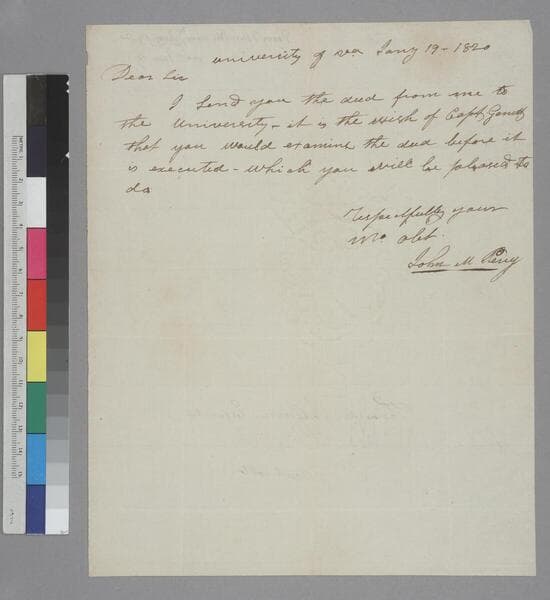 university of va Jany 19 - 1820
Dear Sir
I Send you the deed from me to
the University - it is the wish of Capt. Garrett
that you would examine the deed before it
is executed - which you will be pleased to
do
respectfully yours
mo obt.
John M Perry